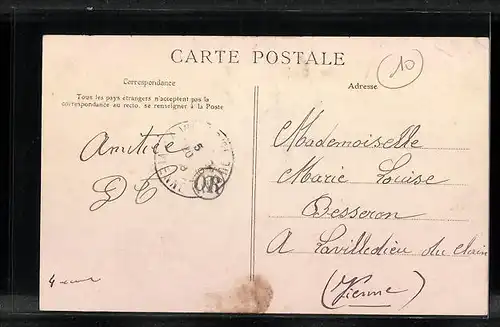 CARTE POSTALE
10
Correspondance
Adresse
Tous les pays étrangers n'acceptent pas la
correspondance au recto, se renseigner à la Poste
Amitiée
D C
OR
Mademoiselle
Marie Louise
Besseron
A Lavilledieu du Clain
(Vienne)